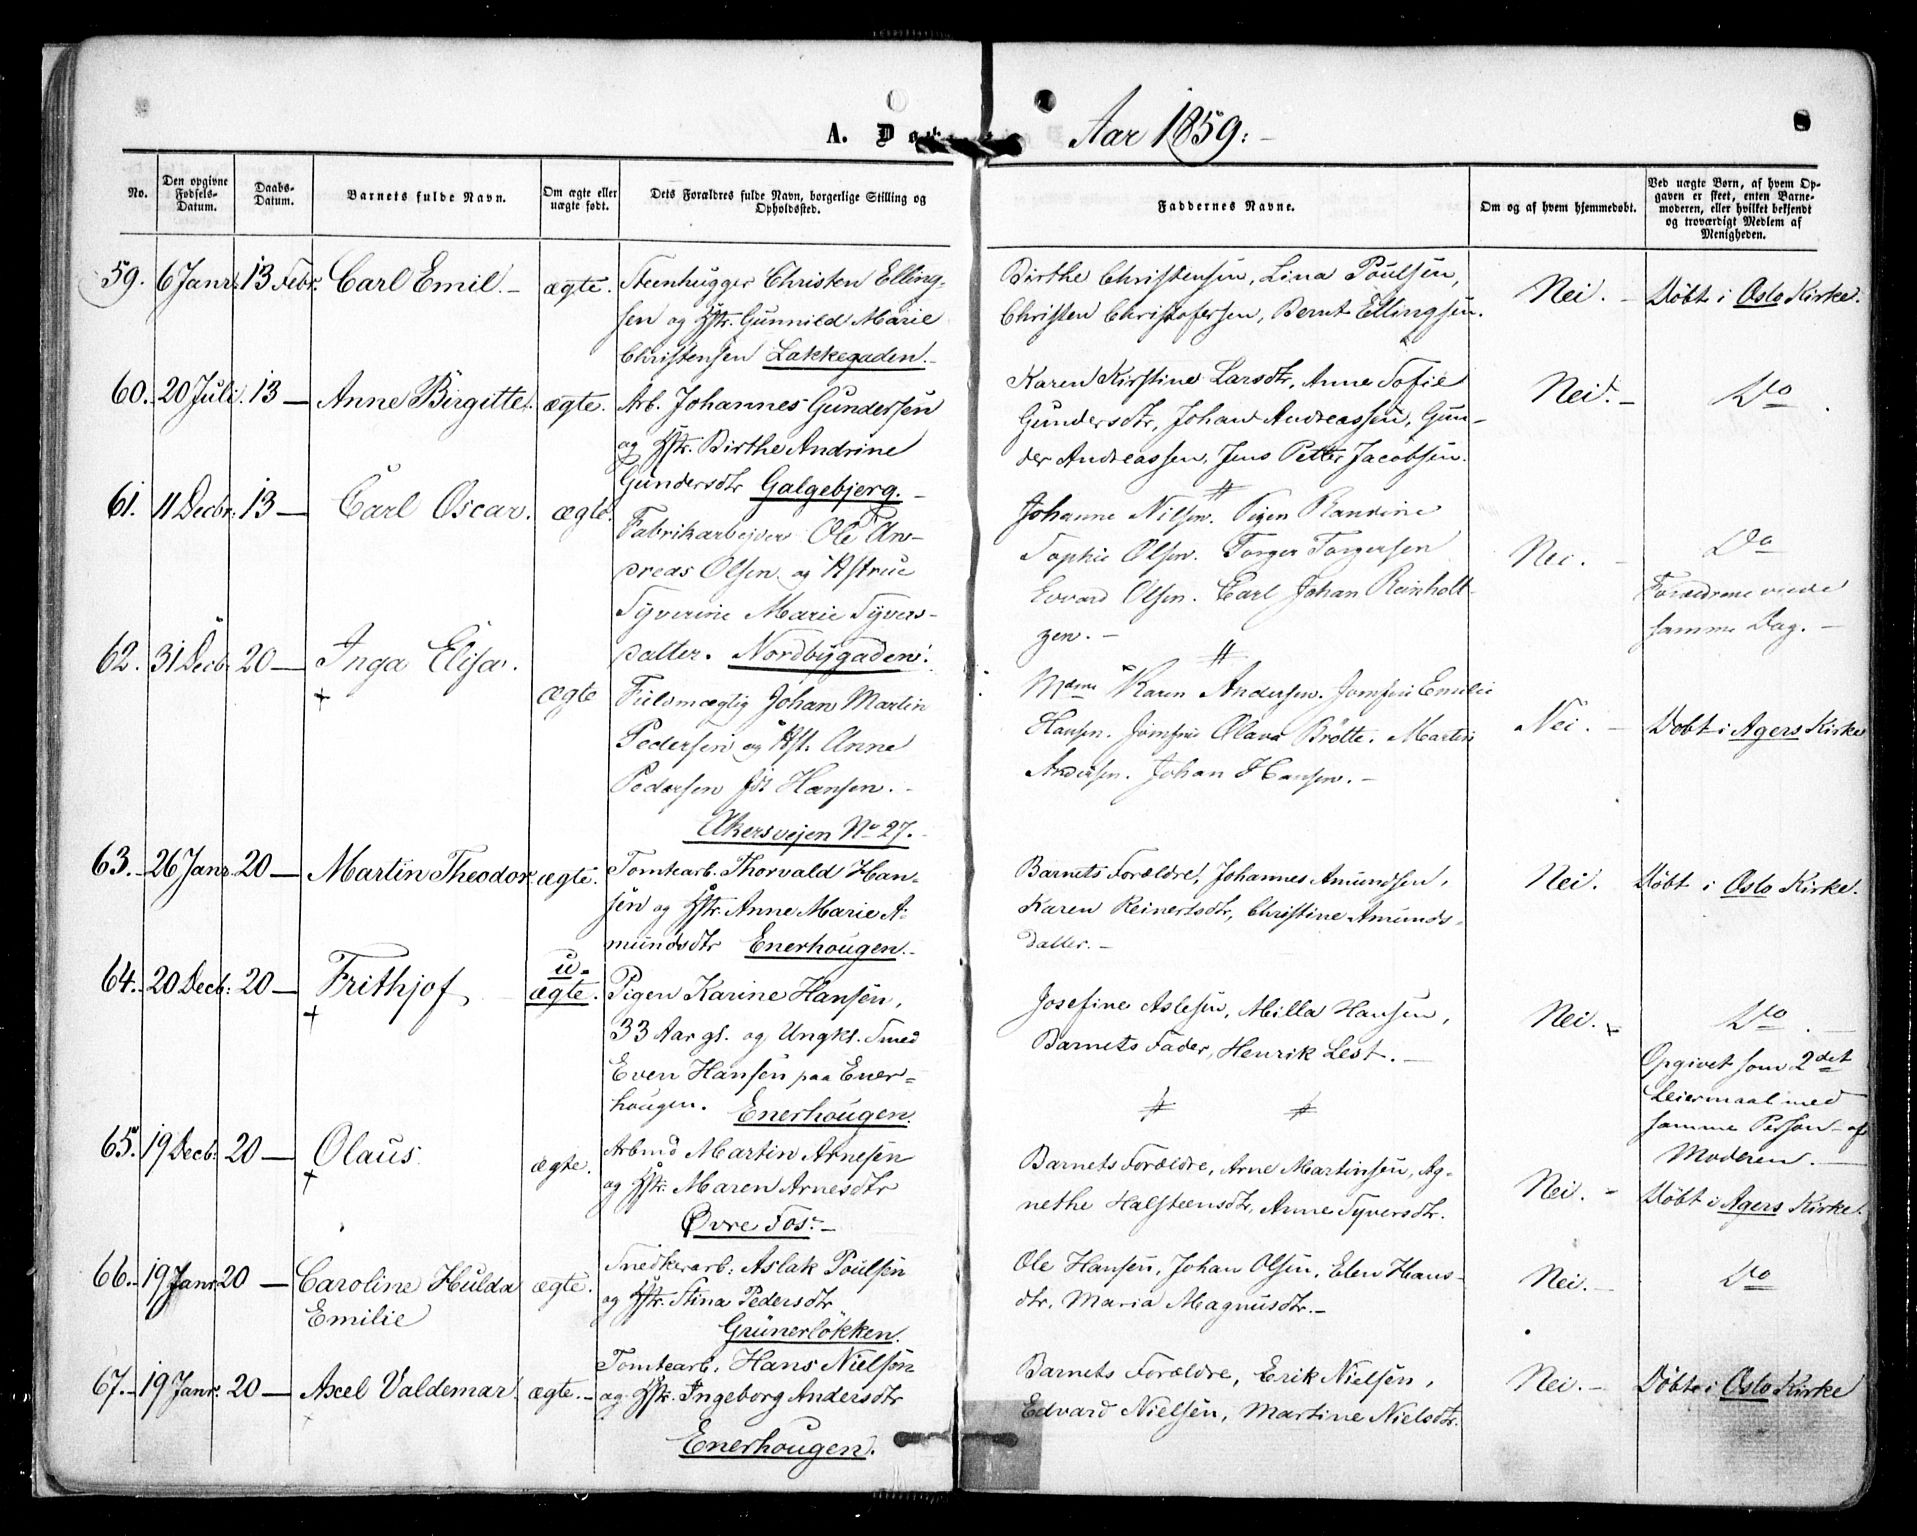 A. D
Aar 1859.
8
No.
Den opgivne Fødsels-Datum.
Daabs-Datum.
Barnets fulde Navn.
Om ægte eller uægte født.
Dets Forældres fulde Navn, borgerlige Stilling og Opholdssted.
Faddernes Navne.
Om og af hvem hjemmedøbt.
Ved uægte Børn, af hvem Opgaven er skeet, enten Barnemoderen, eller hvilket bekjendt og troværdigt Medlem af Menigheden.
59. 6 Janr. 13 Febr. Carl Emil. ægte.
Steenhugger Christen Elling-
sen og Hstr. Gunnild Marie
Christensen Lakkegaden.
Birthe Christensen, Lina Poulsen,
Christen Christofersen, Bernt Ellingsen.
Nei.
Døbt i Oslo Kirke.
60. 20 Juli. 13 Anne Birgitte. ægte.
Arb. Johannes Gundersen
og Hstr. Birthe Andrine
Gundersdtr Galgebjerg.
Karen Kirstine Larsdtr, Anne Sofie
Gundersdtr, Johan Andreassen, Gun-
der Andreassen, Jens Petter Jacobsen.
Nei.
Do
61. 11 Decbr. 13 Carl Oscar. ægte.
Fabrikarbeider Ole An-
dreas Olsen og Hstrue
Syverine Marie Syvers-
datter. Nordbygaden.
Johanne Nilsen. Pigen Randine
Sophie Olsen. Torger Torgersen
Edvard Olsen. Carl Johan Reinholt-
zen.
Nei.
Do
Forældrene viede
samme Dag.
62. 31 Decb. 20 Inga Elisa. ægte
Fuldmægtig Johan Martin
Pedersen og Hst. Anne
Pedersen fdt Hansen.
Akersvejen No 27.
Mdme Karen Andersen. Jomfru Emilie
Hansen. Jomfru Olava Brötte. Martin
Andersen. Johan Hansen.
Nei.
Døbt i Agers Kirke
63. 26 Janr. 20 Martin Theodor ægte.
Tomtearb. Thorvald Han-
sen og Hstr. Anne Marie A-
mundsdtr Enerhougen.
Barnets Forældre, Johannes Amundsen,
Karen Reinertsdtr, Christine Amunds-
datter.
Nei.
Døbt i Oslo Kirke.
64. 20 Decb: 20 Frithjof u-
ægte.
Pigen Karine Hansen,
33 Aar gl. og Ungkl. Smed
Even Hansen paa Ener-
hougen. Enerhougen.
Josefine Aslesen, Milla Hansen,
Barnets Fader, Henrik Lest.
Nei.
Do
Opgivet som 2det
Leiermaal med
samme Person af
Moderen.
65. 19 Decb. 20 Olaus. ægte.
Arbmd Martin Arnesen
og Hstr. Maren Arnesdtr
Øvre Fos.
Barnets Forældre, Arne Martinsen, Ag-
nethe Halsteensdtr, Anne Syversdtr.
Nei.
Døbt i Agers Kirke.
66. 19 Janr. 20 Caroline Hulda ægte.
Emilie
Snedkerarb: Aslak Poulsen
og Hstr. Stina Pedersdtr
Grünerløkken.
Ole Hansen, Johan Olsen, Elen Hans-
dtr, Maria Magnusdtr.
Nei.
Do
67. 19 Janr. 20 Axel Valdemar ægte.
Tomtearb. Hans Nielsen
og Hstr. Ingeborg Andersdtr
Enerhougen.
Barnets Forældre, Erik Nielsen,
Edvard Nielsen, Martine Nielsdtr.
Nei.
Døbt i Oslo Kirke